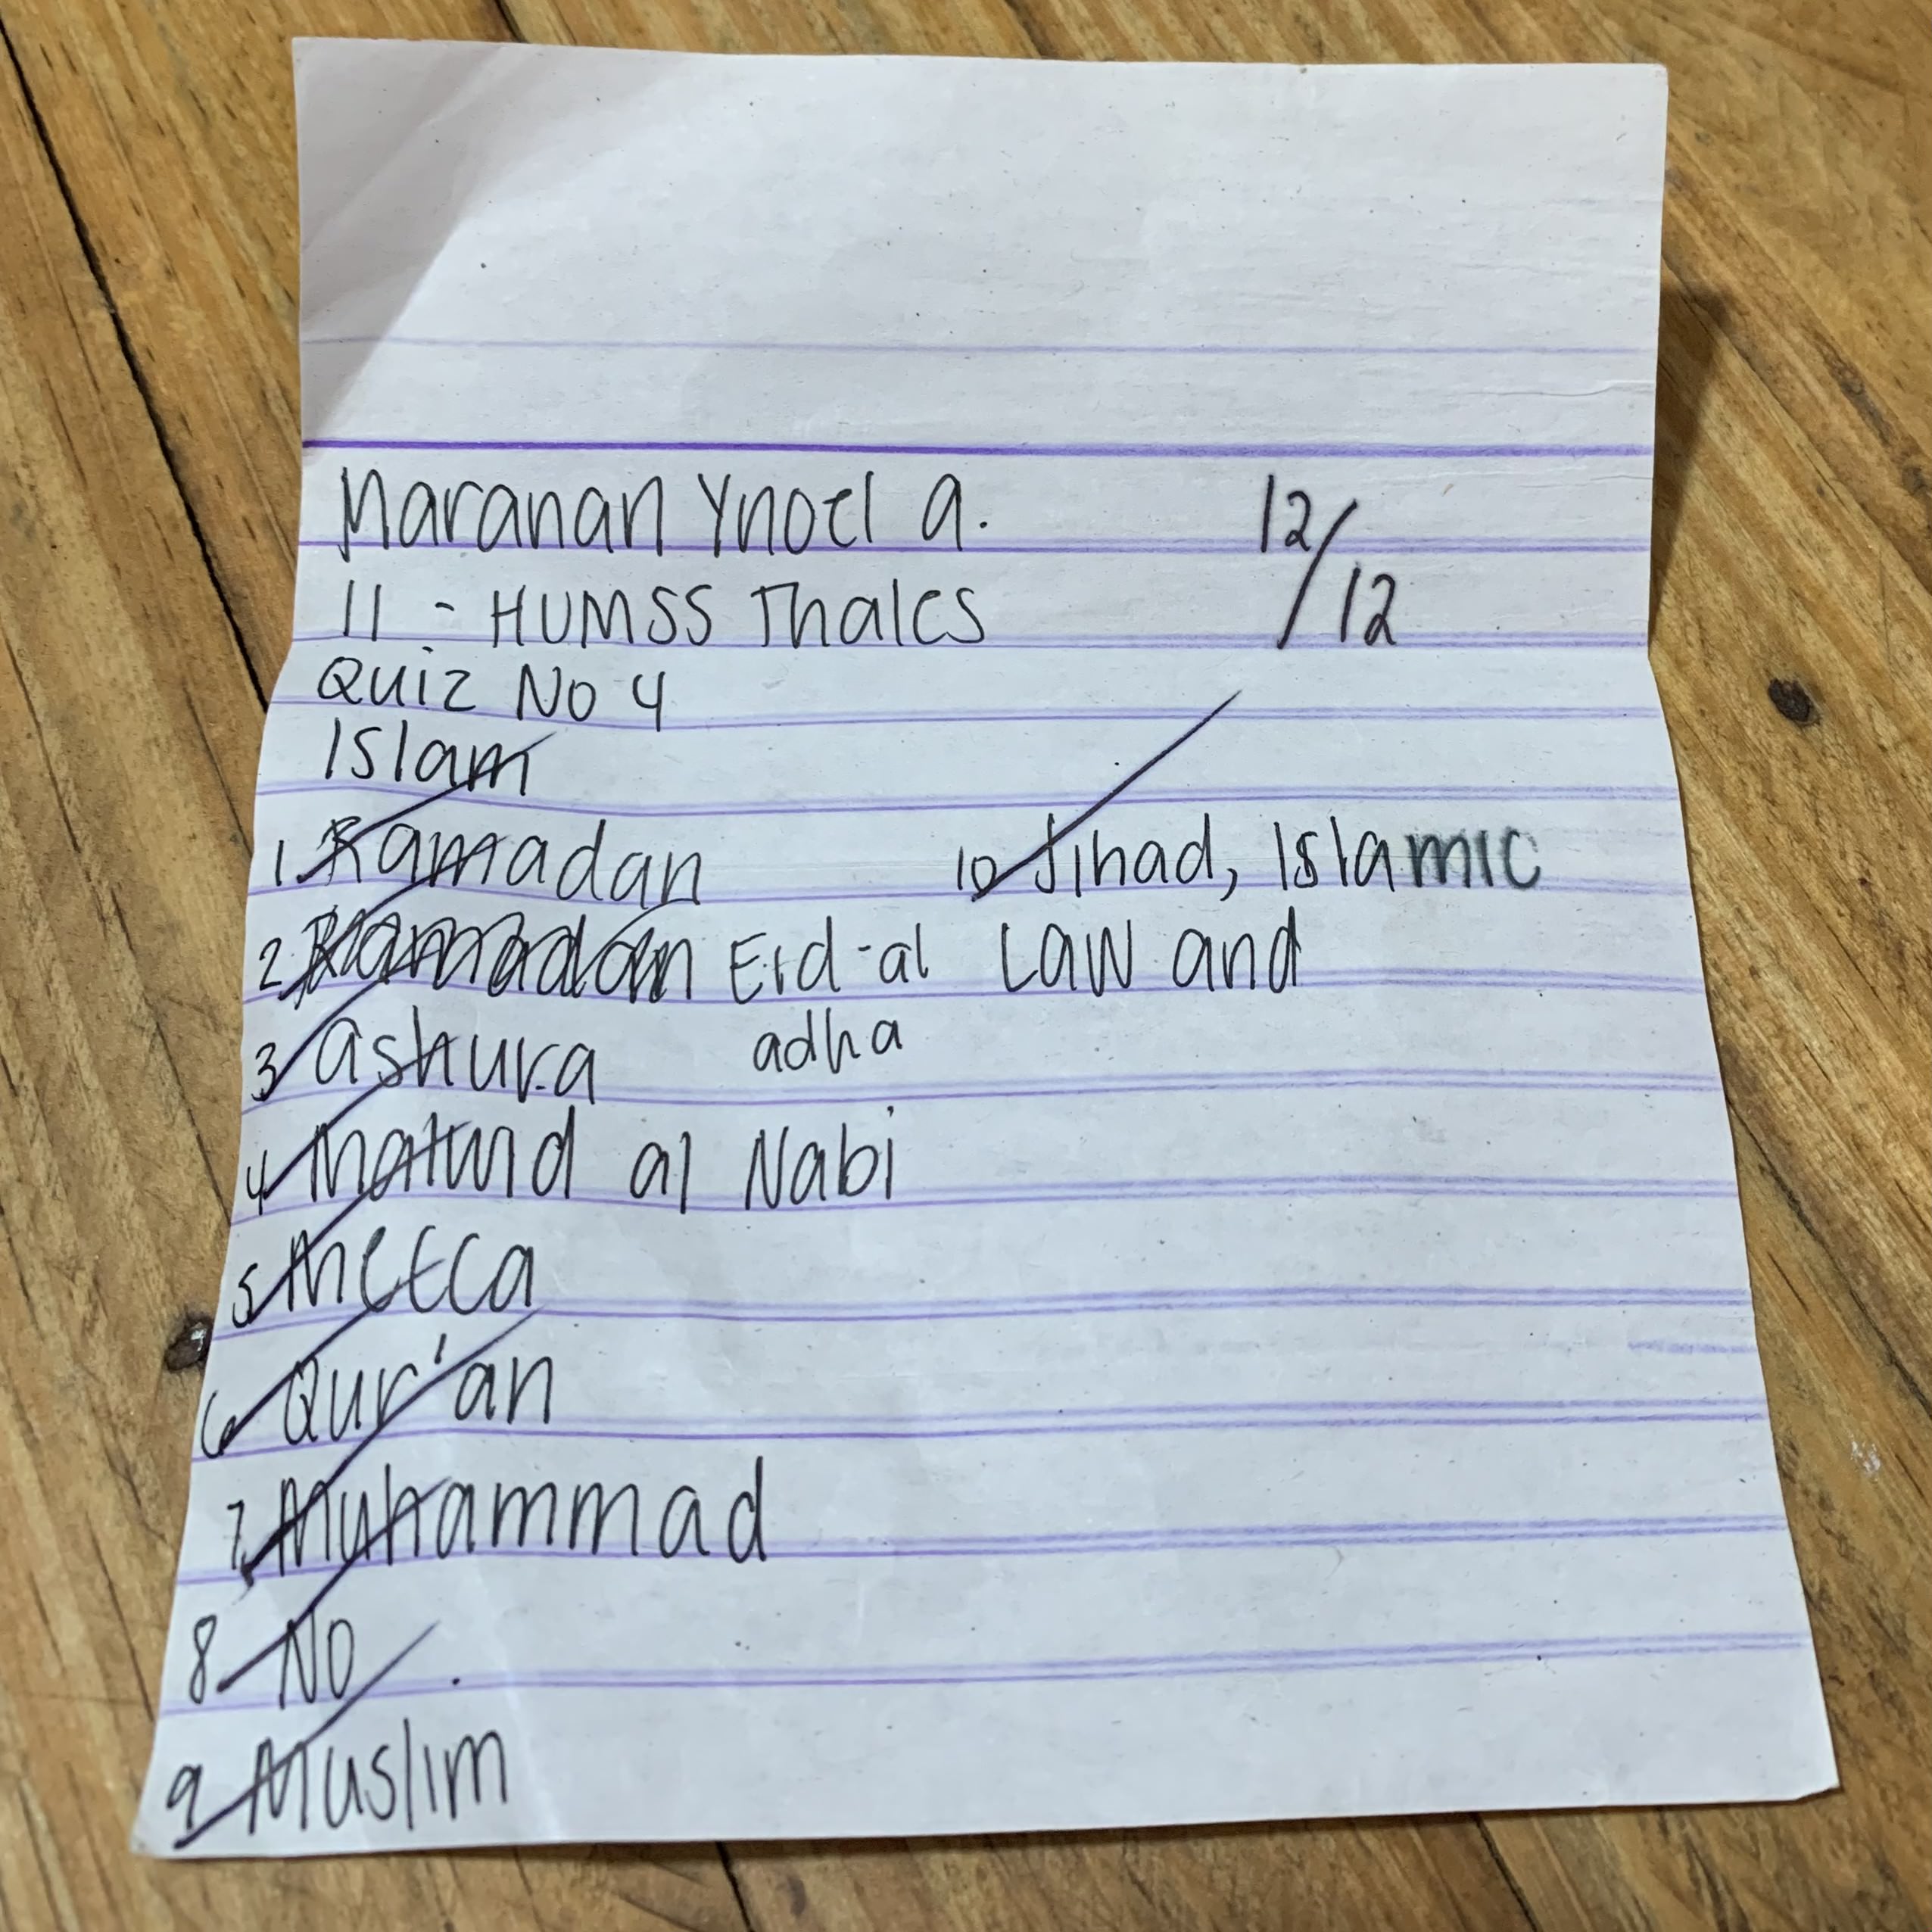 Maranan Ynoel a.
12/12
11 - HUMSS Thales
Quiz No 4
Islam
1 Ramadan
2 Ramadan Eid-al
adha
3 ashura
4 Matwid al Nabi
5 Mecca
6 Qur'an
7 Muhammad
8 No
9 Muslim
10 Jihad, Islamic
Law and